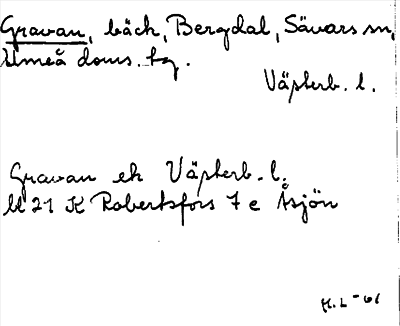 Gravan, bäck, Bergdal, Sävars sn,
Umeå doms. tg.
Västerb. l.
Gravan ek Västerb. l.
bl 21 K Robertsfors 7 e Åsjön
H. L-61